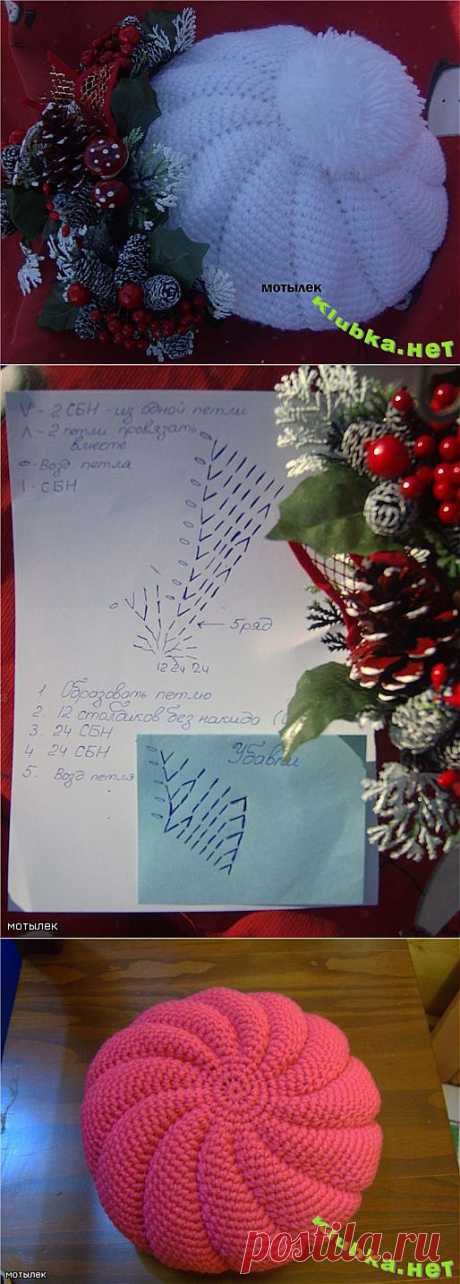 мотылек
кlubка.нет
V - 2 СБН - из одной петли
Λ - 2 петли провязать
вместе
0 - Возд петля
I - СБН
← 5 ряд
12 24 24
1 Образовать петлю
2. 12 столбиков без накида (
3. 24 СБН
4. 24 СБН
5. Возд петля
Убавки
мотылек
мотылек
кlubка.нет
postila.ru